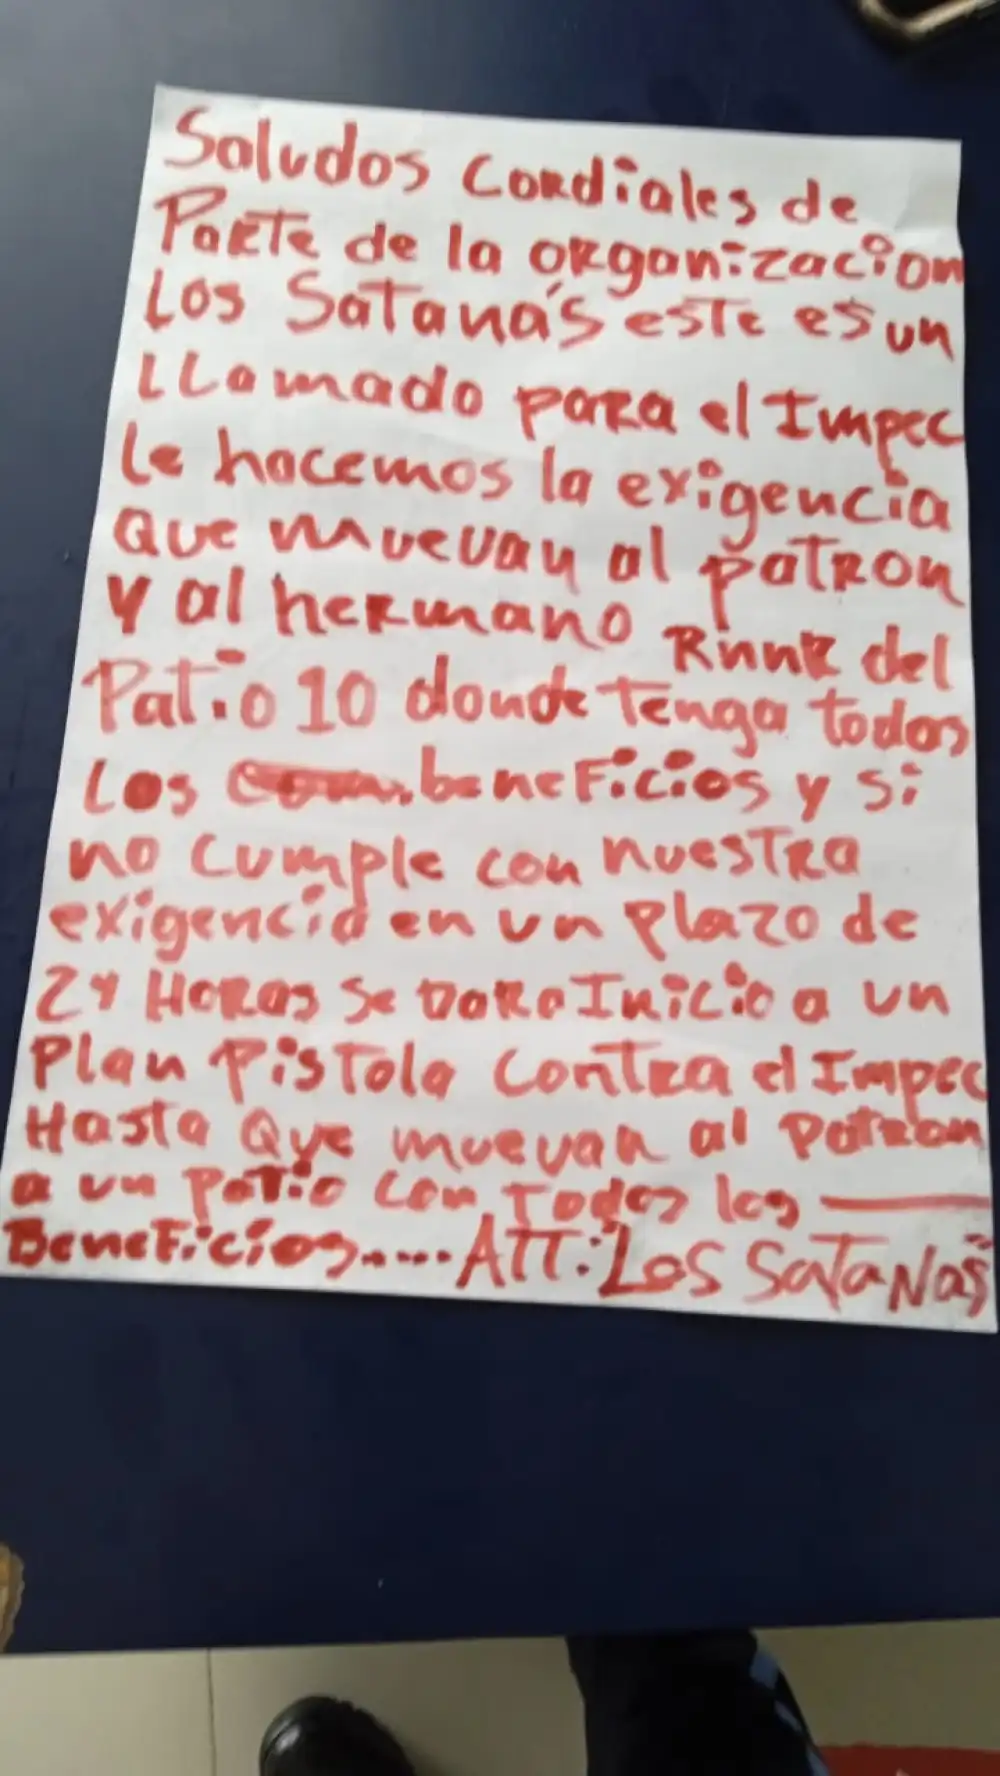 Saludos Cordiales de
Parte de la organizacion
Los Satanás este es un
LLamado para el Impec
Le hacemos la exigencia
Que muevan al patron
Y al hermano del
Patio 10 donde tenga todos
Los beneficios y si
no cumple con nuestra
exigencia en un plazo de
24 Horas se dara Inicio a un
Plan Pistola contra el Impec
Hasta Que muevan al Patron
a un Patio con Todos los
Beneficios.... ATT: Los Satanas